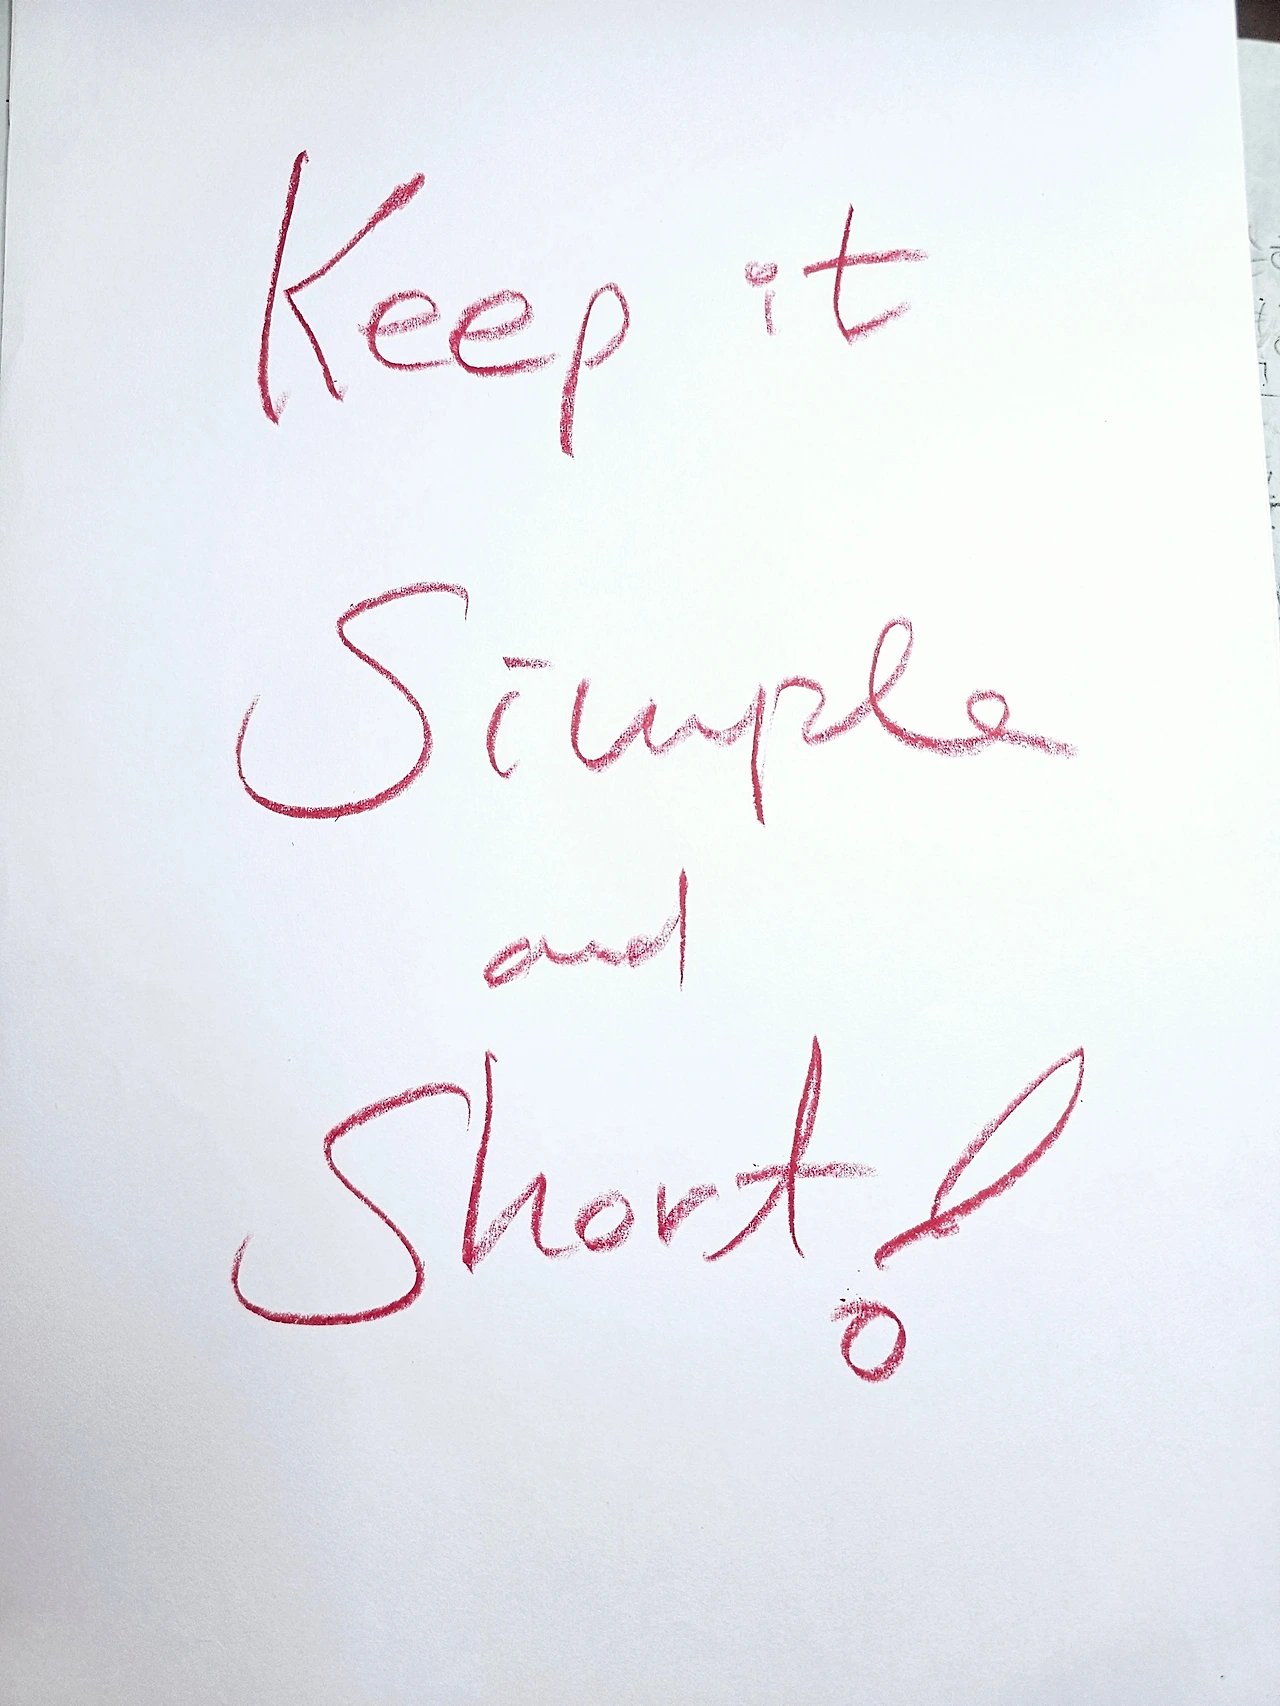 Keep it
Simple
and
Short!